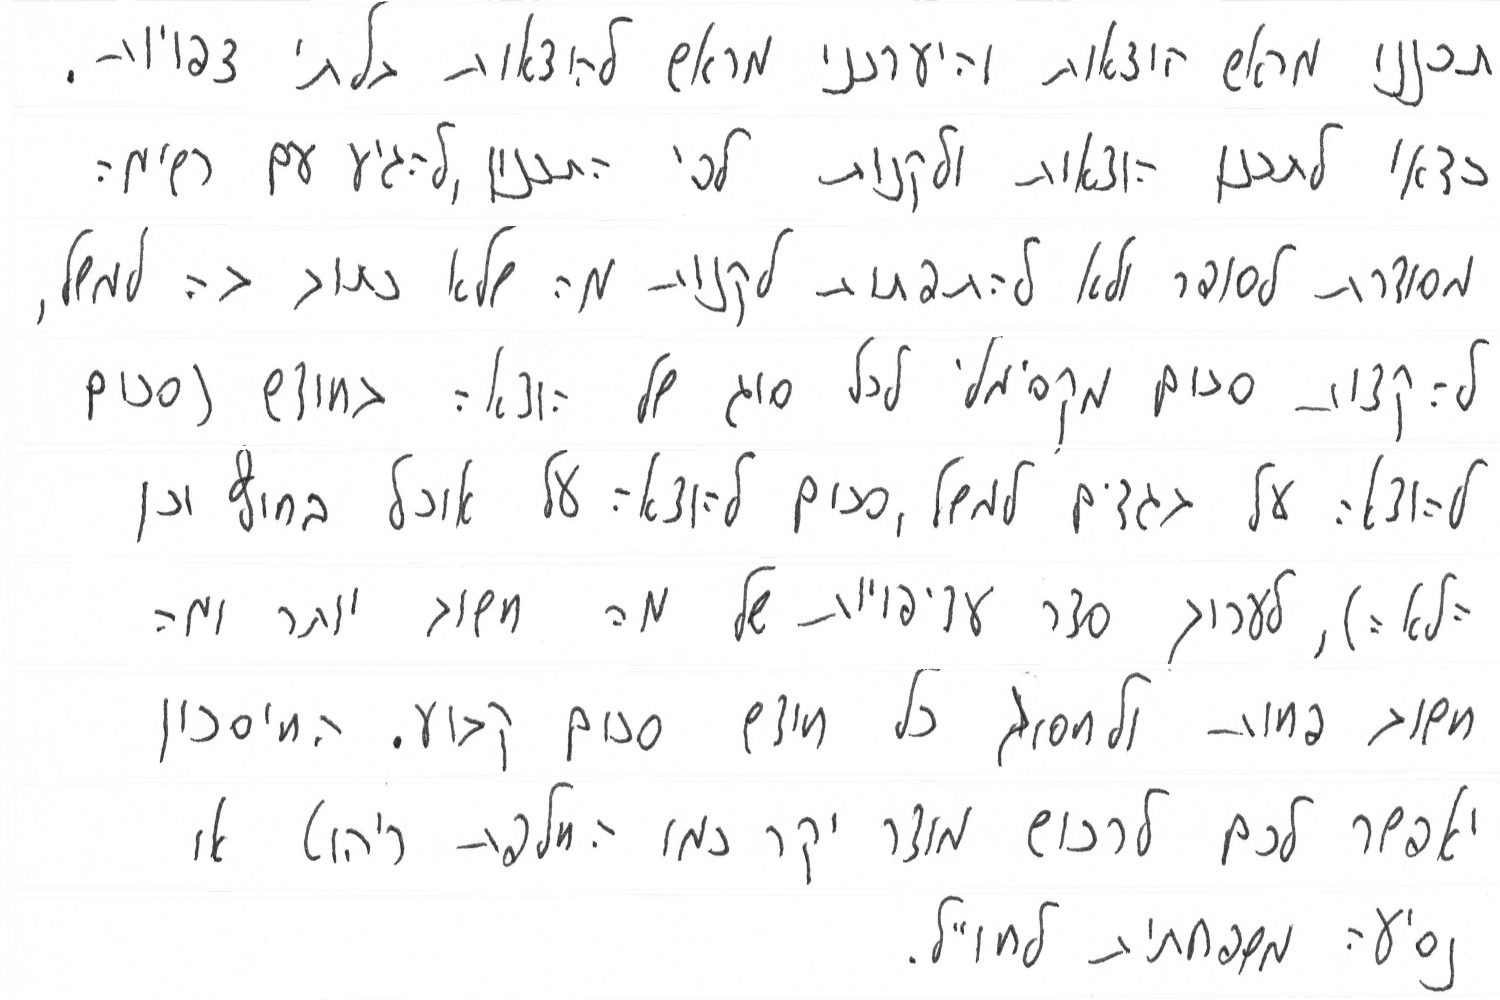 תכננו מראש הוצאות והיערכו מראש להוצאות בלתי צפויות.
כדאי לתכנן הוצאות ולקנות לפי התכנון, להגיע עם רשימה
מסודרת לסופר ולא להתפתות לקנות מה שלא כתוב בה למשל,
להקצות סכום מקסימלי לכל סוג של הוצאה בחודש (סכום
להוצאה על בגדים למשל, סכום להוצאה על אוכל בחוץ וכן
הלאה), לערוך סדר עדיפויות של מה חשוב יותר ומה
חשוב פחות ולחסוך כל חודש סכום קבוע. החיסכון
יאפשר לכם לרכוש מוצר יקר כמו החלפת ריהוט או
נסיעה משפחתית לחו"ל.